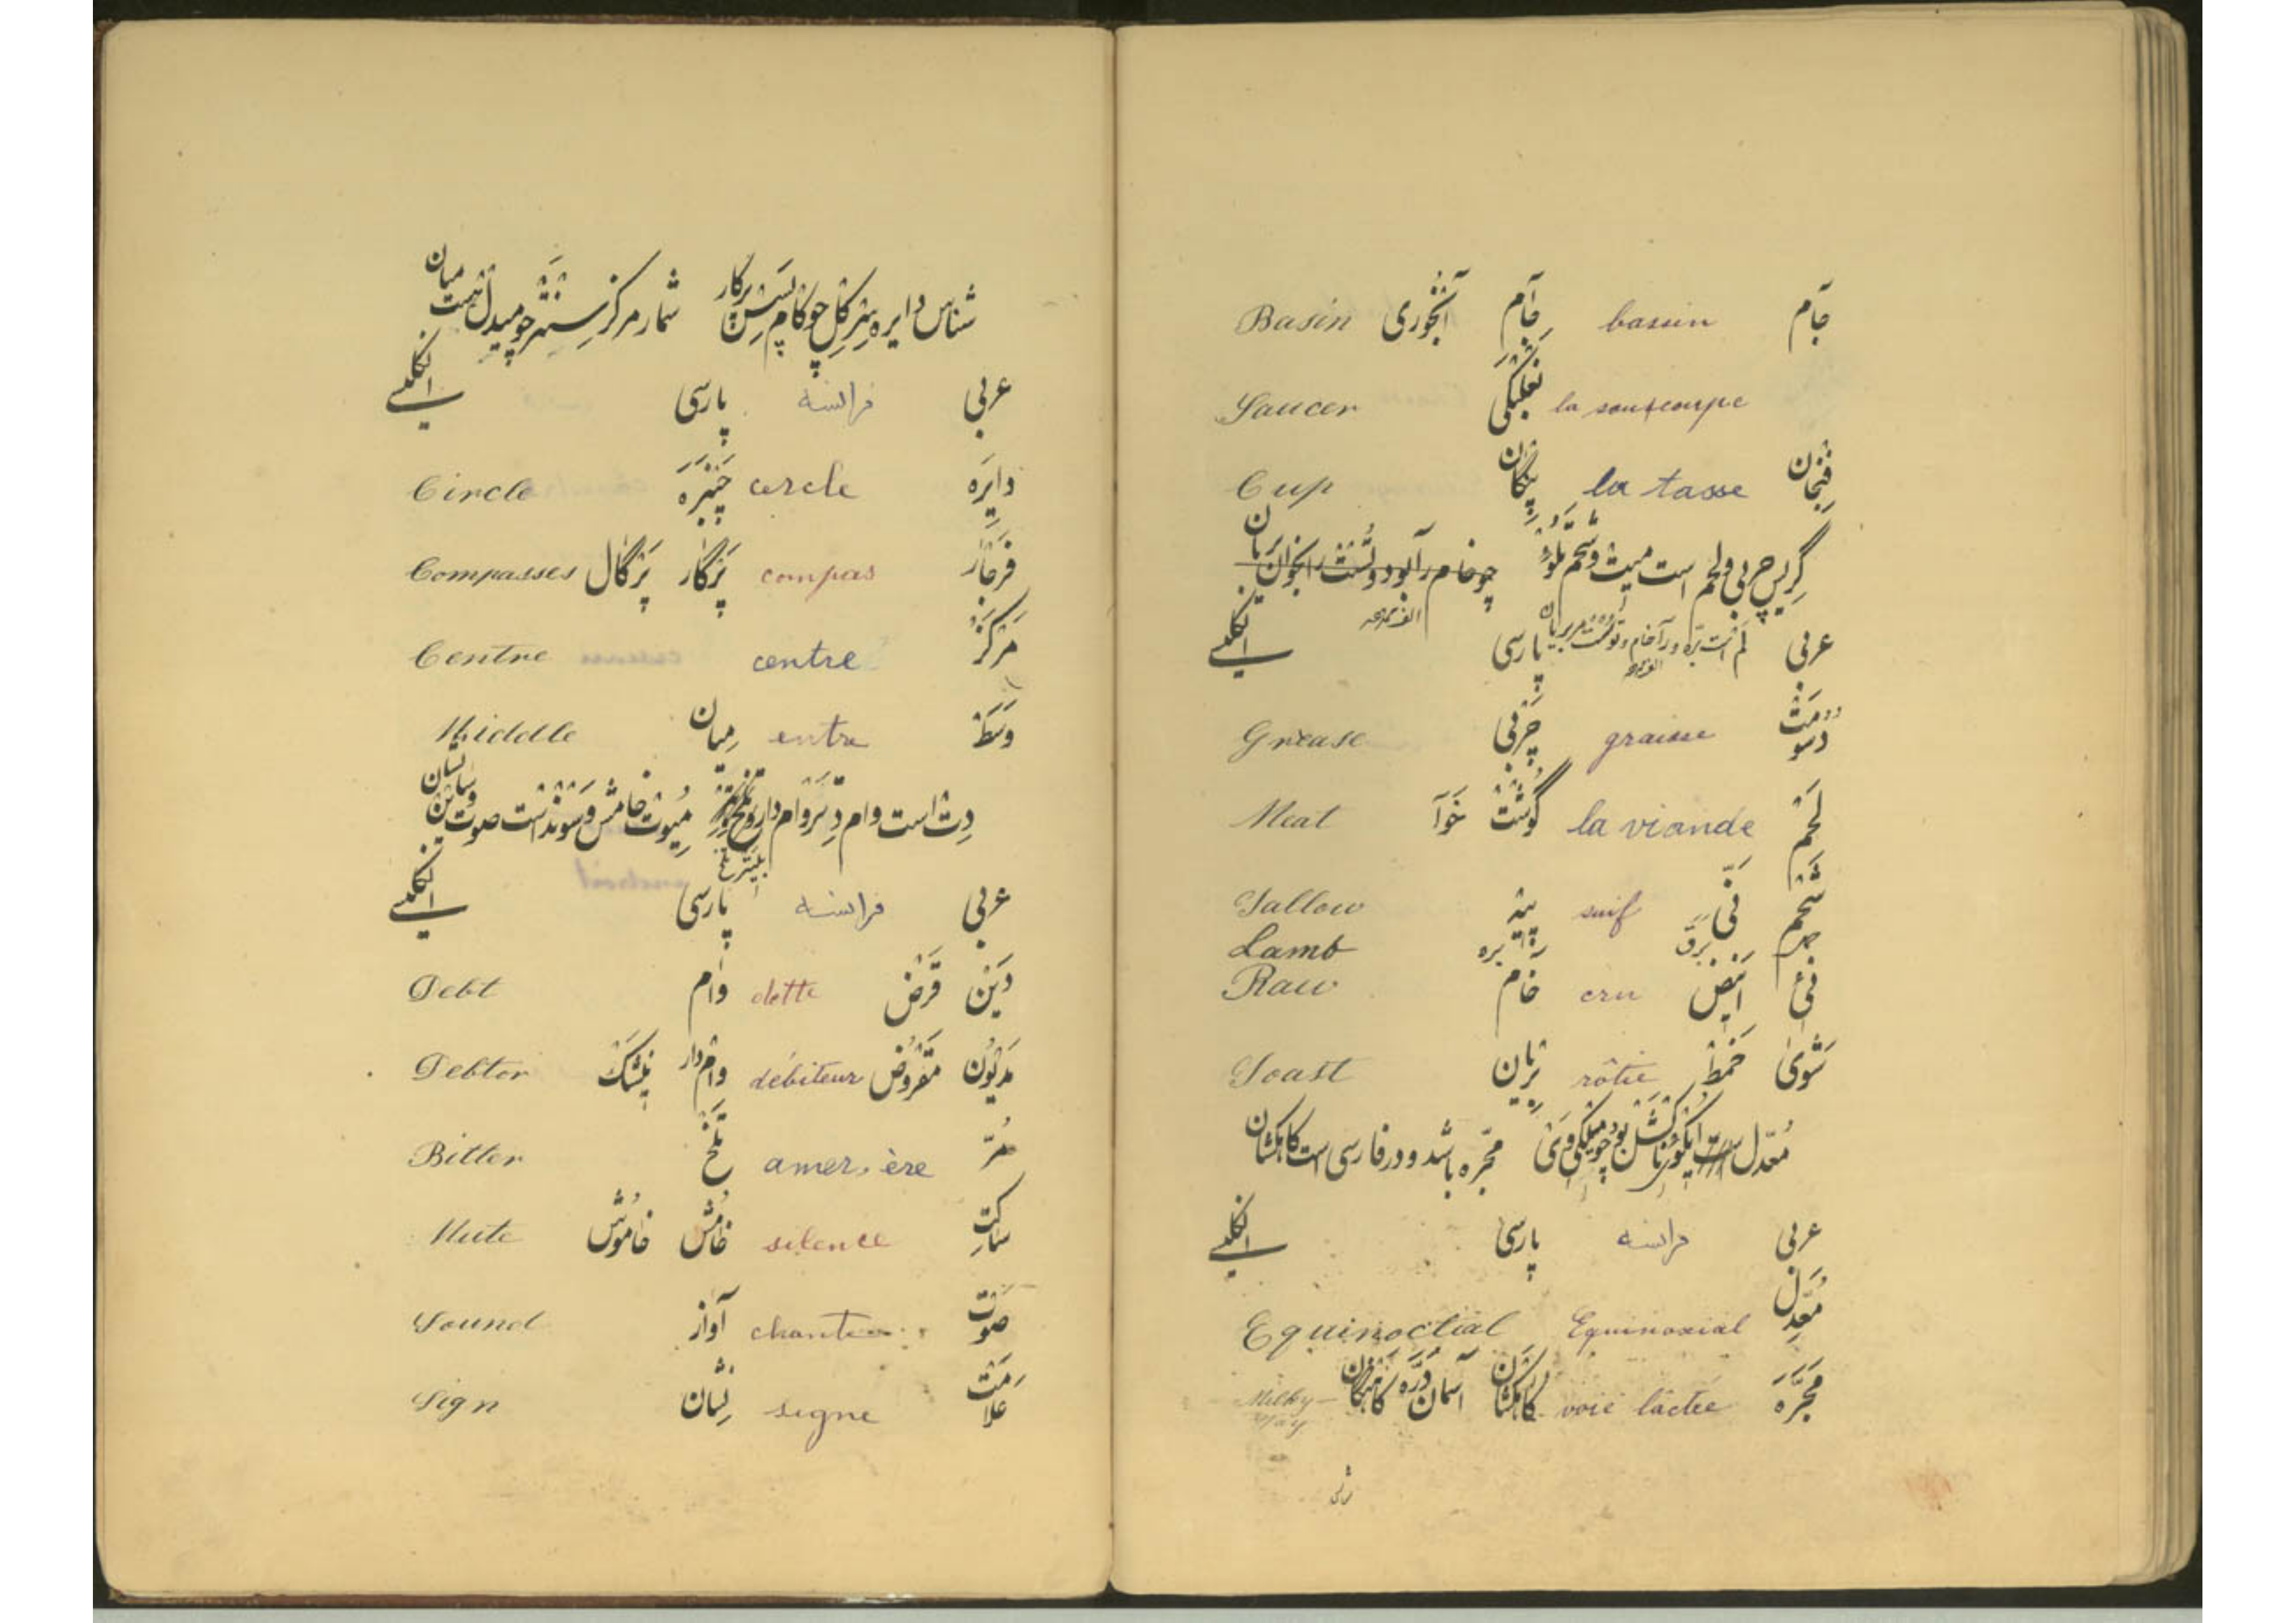 جام bassin جام آبخوری Basin
la souscoupe نعلبکی Saucer
فنجان la tasse پنگان Cup
گریس چربی و لحم است میت و شحم تلو چو خام رآبود و تست را بخوان بریان
عربی پارسی انگلیسی
دسومت graisse چربی Grease
لحم la viande گوشت خوا Meat
شحم نی suif پیه Tallow
برق بره Lamb
نیء انیض cru خام Raw
شوی خمط rôtie بریان Toast
معدل است ایکونکشل بود چو میلکی وی مجره باشد و در فارسی است کاهکشان
عربی فرانسه پارسی انگلیسی
معدل Equinoxial Equinoctial
مجره voie lactée کاهکشان آسمان دره کاهنگان Milky-Way
شناس دایره سرکل چو کامپسس پرگار شمار مرکز سنتر چو میدل است میان
عربی فرانسه پارسی انگلیسی
دایره cercle چنبره Circle
فرجار compas پرگار پرگال Compasses
مرکز centre Centre
وسط entre میان Middle
دت است وام دتر وام دار و تلخ میوت خامش و سوند است صوت و ساین نشان
عربی فرانسه پارسی انگلیسی
دین قرض dette وام Debt
مدیون مقروض débiteur وام‌دار Debtor
مر amer, ère تلخ Bitter
ساکت silence خامش خاموش Mute
صوت chante آواز Sound
علامت signe نشان Sign